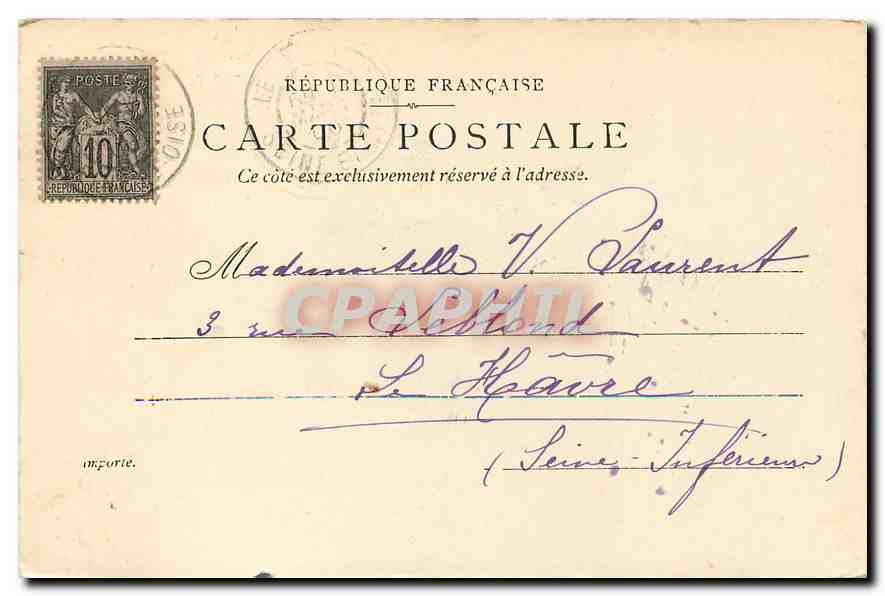 POSTE
10
RÉPUBLIQUE FRANÇAISE
OISE
LE
SEINE
RÉPUBLIQUE FRANÇAISE
CARTE POSTALE
Ce côté est exclusivement réservé à l'adresse.
Mademoiselle V. Laurent
3 rue Leblond
CPAPHIL
Le Hâvre
(Seine-Inférieure)
importe.